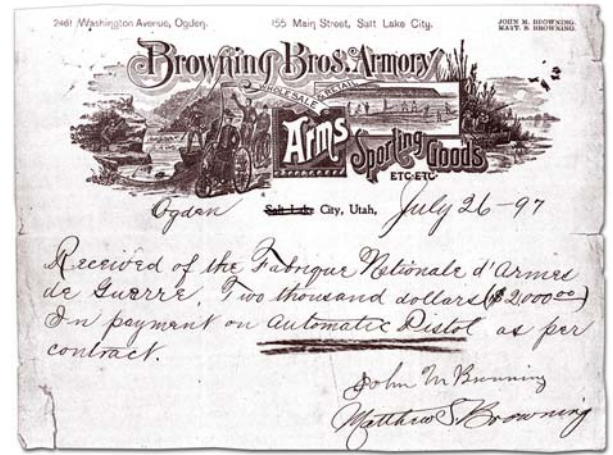 2461 Washington Avenue, Ogden. 155 Main Street, Salt Lake City. JOHN M. BROWNING.
MATT. S. BROWNING.
Browning Bros. Armory
WHOLESALE & RETAIL
Arms
Sporting Goods
ETC. ETC.
Ogden Salt Lake City, Utah, July 26-97
Received of the Fabrique Nationale d'Armes
de Guerre, Two thousand dollars ($2000 00)
In payment on Automatic Pistol as per
contract.
John M Browning
Matthew S. Browning